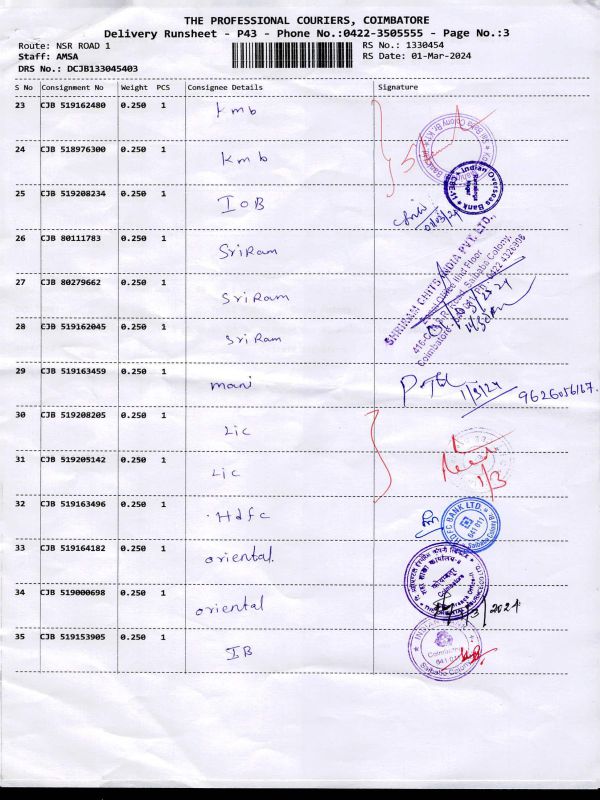 THE PROFESSIONAL COURIERS, COIMBATORE
Delivery Runsheet - P43 - Phone No.:0422-3505555 - Page No.:3
Route: NSR ROAD 1 RS No.: 1330454
Staff: AMSA RS Date: 01-Mar-2024
DRS No.: DCJB133045403
S No Consignment No Weight PCS Consignee Details Signature
23 CJB 519162480 0.250 1 kmb
24 CJB 518976300 0.250 1 kmb
25 CJB 519208234 0.250 1 IOB
Indian Overseas Bank
26 CJB 80111783 0.250 1 SriRam
SHRIRAM CHITS INDIA PVT. LTD.,
27 CJB 80279662 0.250 1 SriRam
28 CJB 519162045 0.250 1 Sri Ram
29 CJB 519163459 0.250 1 mani
1/3/24 9626056167.
30 CJB 519208205 0.250 1 Lic
31 CJB 519205142 0.250 1 Lic
1/3
32 CJB 519163496 0.250 1 Hdfc
HDFC BANK LTD.
641 011
33 CJB 519164182 0.250 1 oriental.
34 CJB 519000698 0.250 1 oriental
Coimbatore
1/3/2024
35 CJB 519153905 0.250 1 IB
Coimbatore